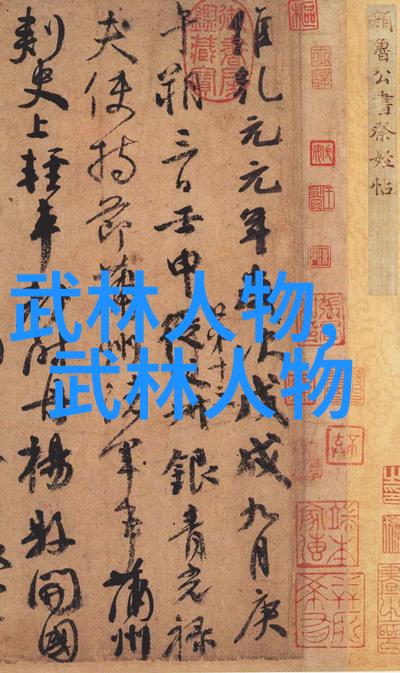 顏魯公書祭姪帖
維乾元元年歲次戊戌九月庚
午朔三日壬申從父叔銀青光祿
第十三
夫使持節蒲州諸軍事蒲州
刺史上輕車都尉丹楊縣開國
武林人物,
武林人物